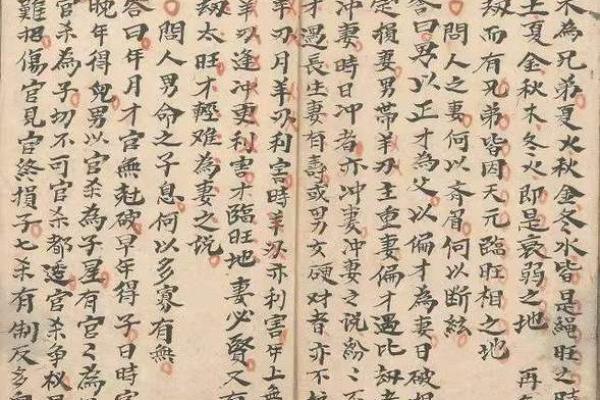 木為兄弟夏火秋金冬水皆是旺之時
土夏金秋木冬火即是衰弱之地 再
劫而有兄弟皆因天元臨旺相之地
問人之妻何以齊眉何以斷絃
答曰男以正才為父以偏才為妻日破
定損妻男帶羊刃主重妻偏才遇比劫者
冲妻時日冲者亦冲妻冲妻之說紛〻不
才遇長生妻有壽或男女硬对者亦不
羊刃月羊刃利害時羊刃亦利害年上無
羊刃逢冲更利害才臨旺地妻必賢又有
劫太旺才輕难為妻之說
問人男命之子息何以多寡有無
答曰年月才官無尅破早年得子日時官
晚年得兒男以官杀為子星有官〻為
官杀為子切不可官杀都透官杀争
難相傷官見官終損子七杀有制反多